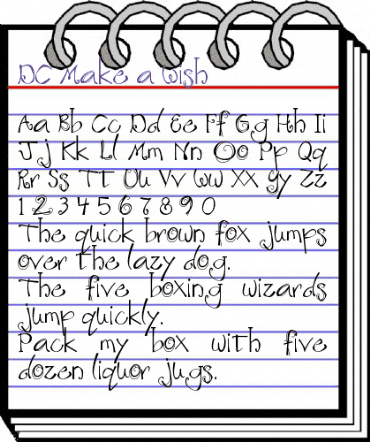 DC Make a Wish
Aa Bb Cc Dd Ee Ff Gg Hh Ii
Jj Kk Ll Mm Nn Oo Pp Qq
Rr Ss TT Uu Vv Ww Xx Yy Zz
1 2 3 4 5 6 7 8 9 0
The quick brown fox jumps
over the lazy dog.
The five boxing wizards
jump quickly.
Pack my box with five
dozen liquor jugs.